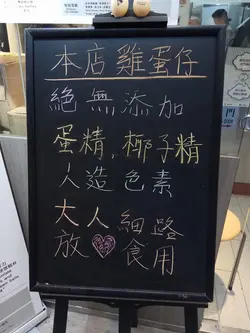 本店雞蛋仔
絕無添加
蛋精,椰子精
人造色素
大人細路
放♥食用